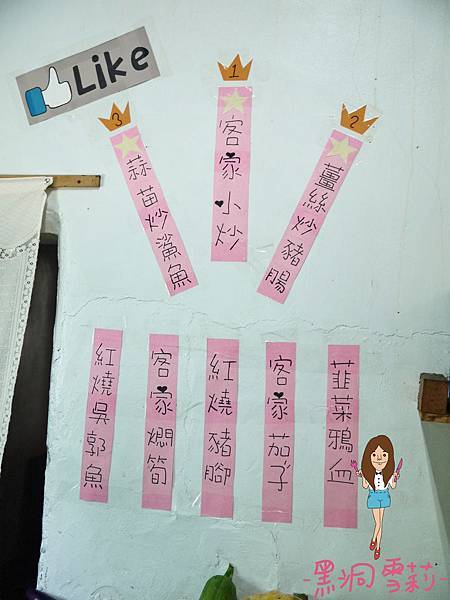 Like
1
客家小炒
2
薑絲炒豬腸
3
蒜苗炒鯊魚
韭菜鴨血
客家茄子
紅燒豬腳
客家燜筍
紅燒吳郭魚
-黑洞雪莉-